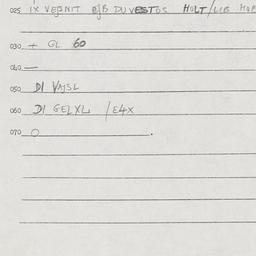 025 IX VEGNIT BJB DUVESTOS HOLT/LIB
030 + GL 60
040 —
050 DI VAJSL
060 DI GELXL /E4X
070 O